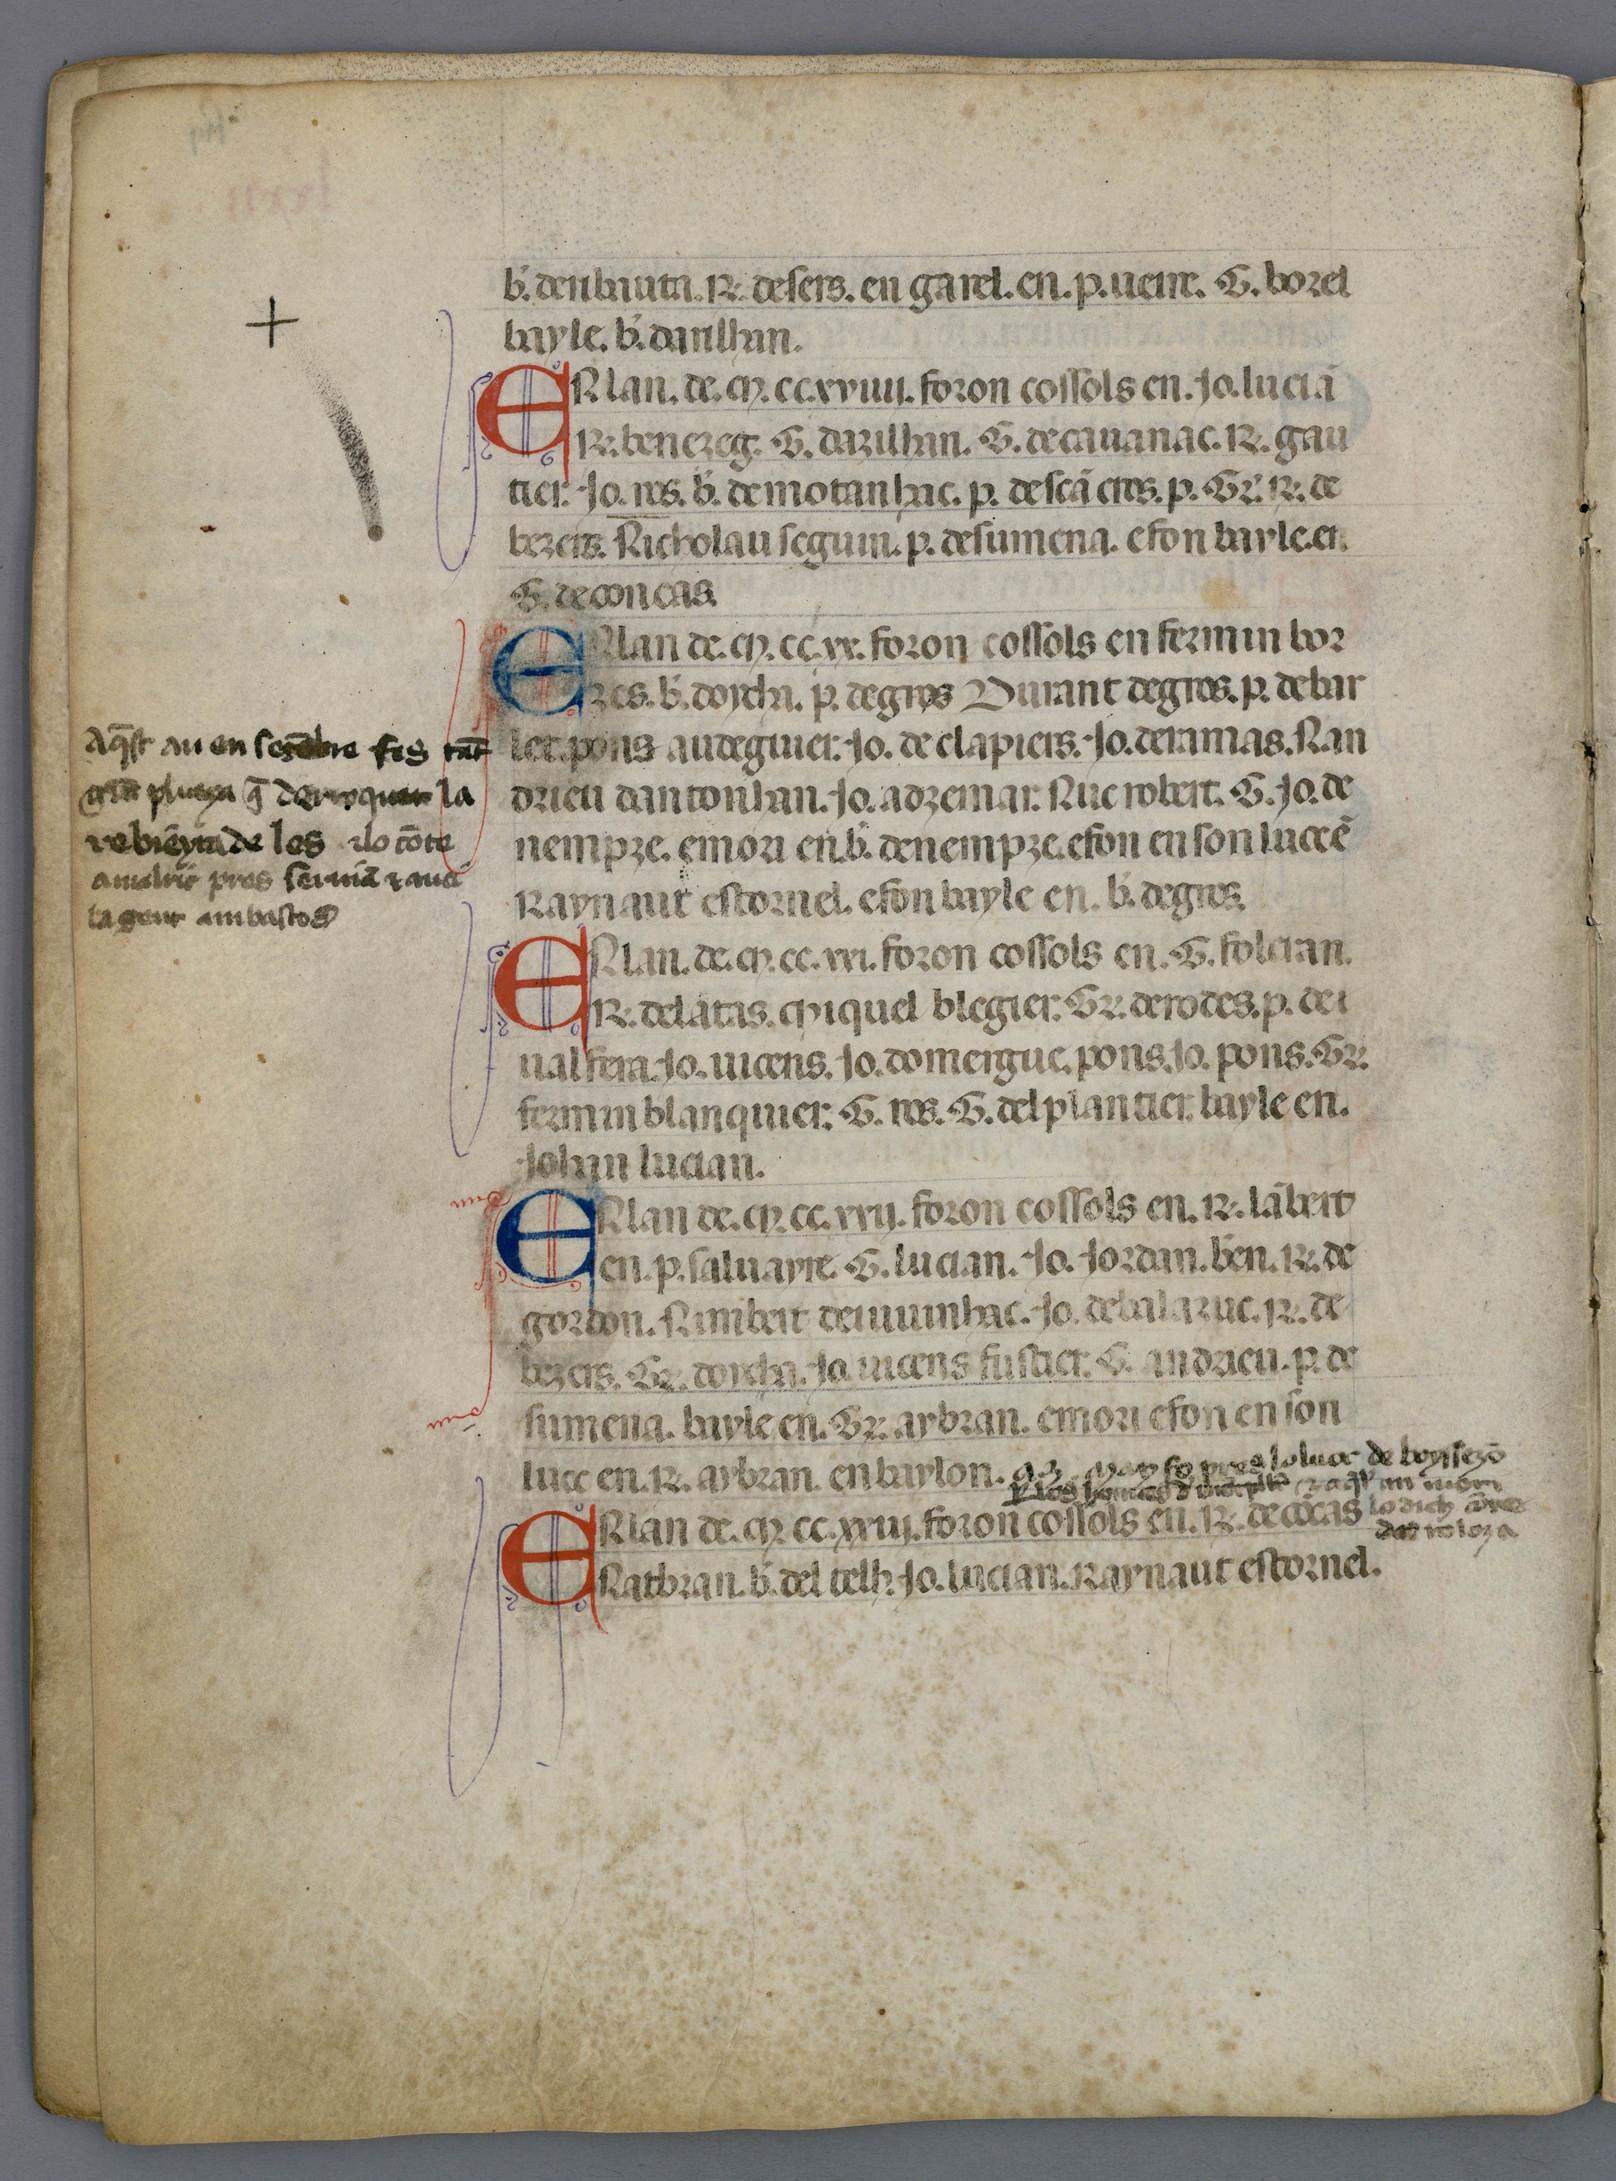 b. de ribauta. R. de sers. en garel. en. p. ueire. G. borel
bayle. b. darilhan.
EN lan. de. M. cc. xviiij. foron cossols en. Jo. luciā
R. benezeg. G. darilhan. G. de cauanac. R. gau
tier. Jo. ros. b. de motanhac. p. de scā cros. p. Gr. R. de
bezers. Nicholau seguin. p. de sumena. e fon bayle. en
G. de concas.
EN lan de. M. cc. xx. foron cossols en fermin bor
zes. b. dorcha. p. de gros Durant de gros. p. de bar
let. pons audeguier. Jo. de clapiers. Jo. de ramas. Nan
drieu dantonhan. Jo. adzemar. Nuc robert. G. Jo. de
nempze. e mori en. b. de nempze. e fon en son luec ē
Raynaut estornel. e fon bayle en. b. de gros.
Aq̄st an en setēbre fes tāt
grā plueya q̄ derroquet la
de les lo cōte
amalric pres seruiā
la gent
EN lan. de. M. cc. xxi. foron cossols en. G. folcran.
R. de latas. Miquel blegier. Gr. de rodes. p. de
ual fera. Jo. uicens. Jo. domergue. pons. Jo. pons. Gr.
fermin blanquier. G. ros. G. del plantier. bayle en.
Johan lucian.
EN lan de. M. cc. xxij. foron cossols en. R. lābert
en. p. saluayre. G. lucian. Jo. Jordan. ben. R. de
gordon. Nimbert de iuuinhac. Jo. de balazuc. R. de
bezers. Gr. dorcha. Jo. uicens fustier. G. andrieu. p. de
sumena. bayle en. Gr. aybran. e mori e fon en son
luec en. R. aybran. en baylon. may fo pres lo luoc de boyssezō
p los homes d aq̄st an mori
lo dich cōte
de toloza
EN lan de. M. cc. xxiij. foron cossols en. R. de cōcas
Natbran. b. del telh. Jo. lucian. Raynaut estornel.